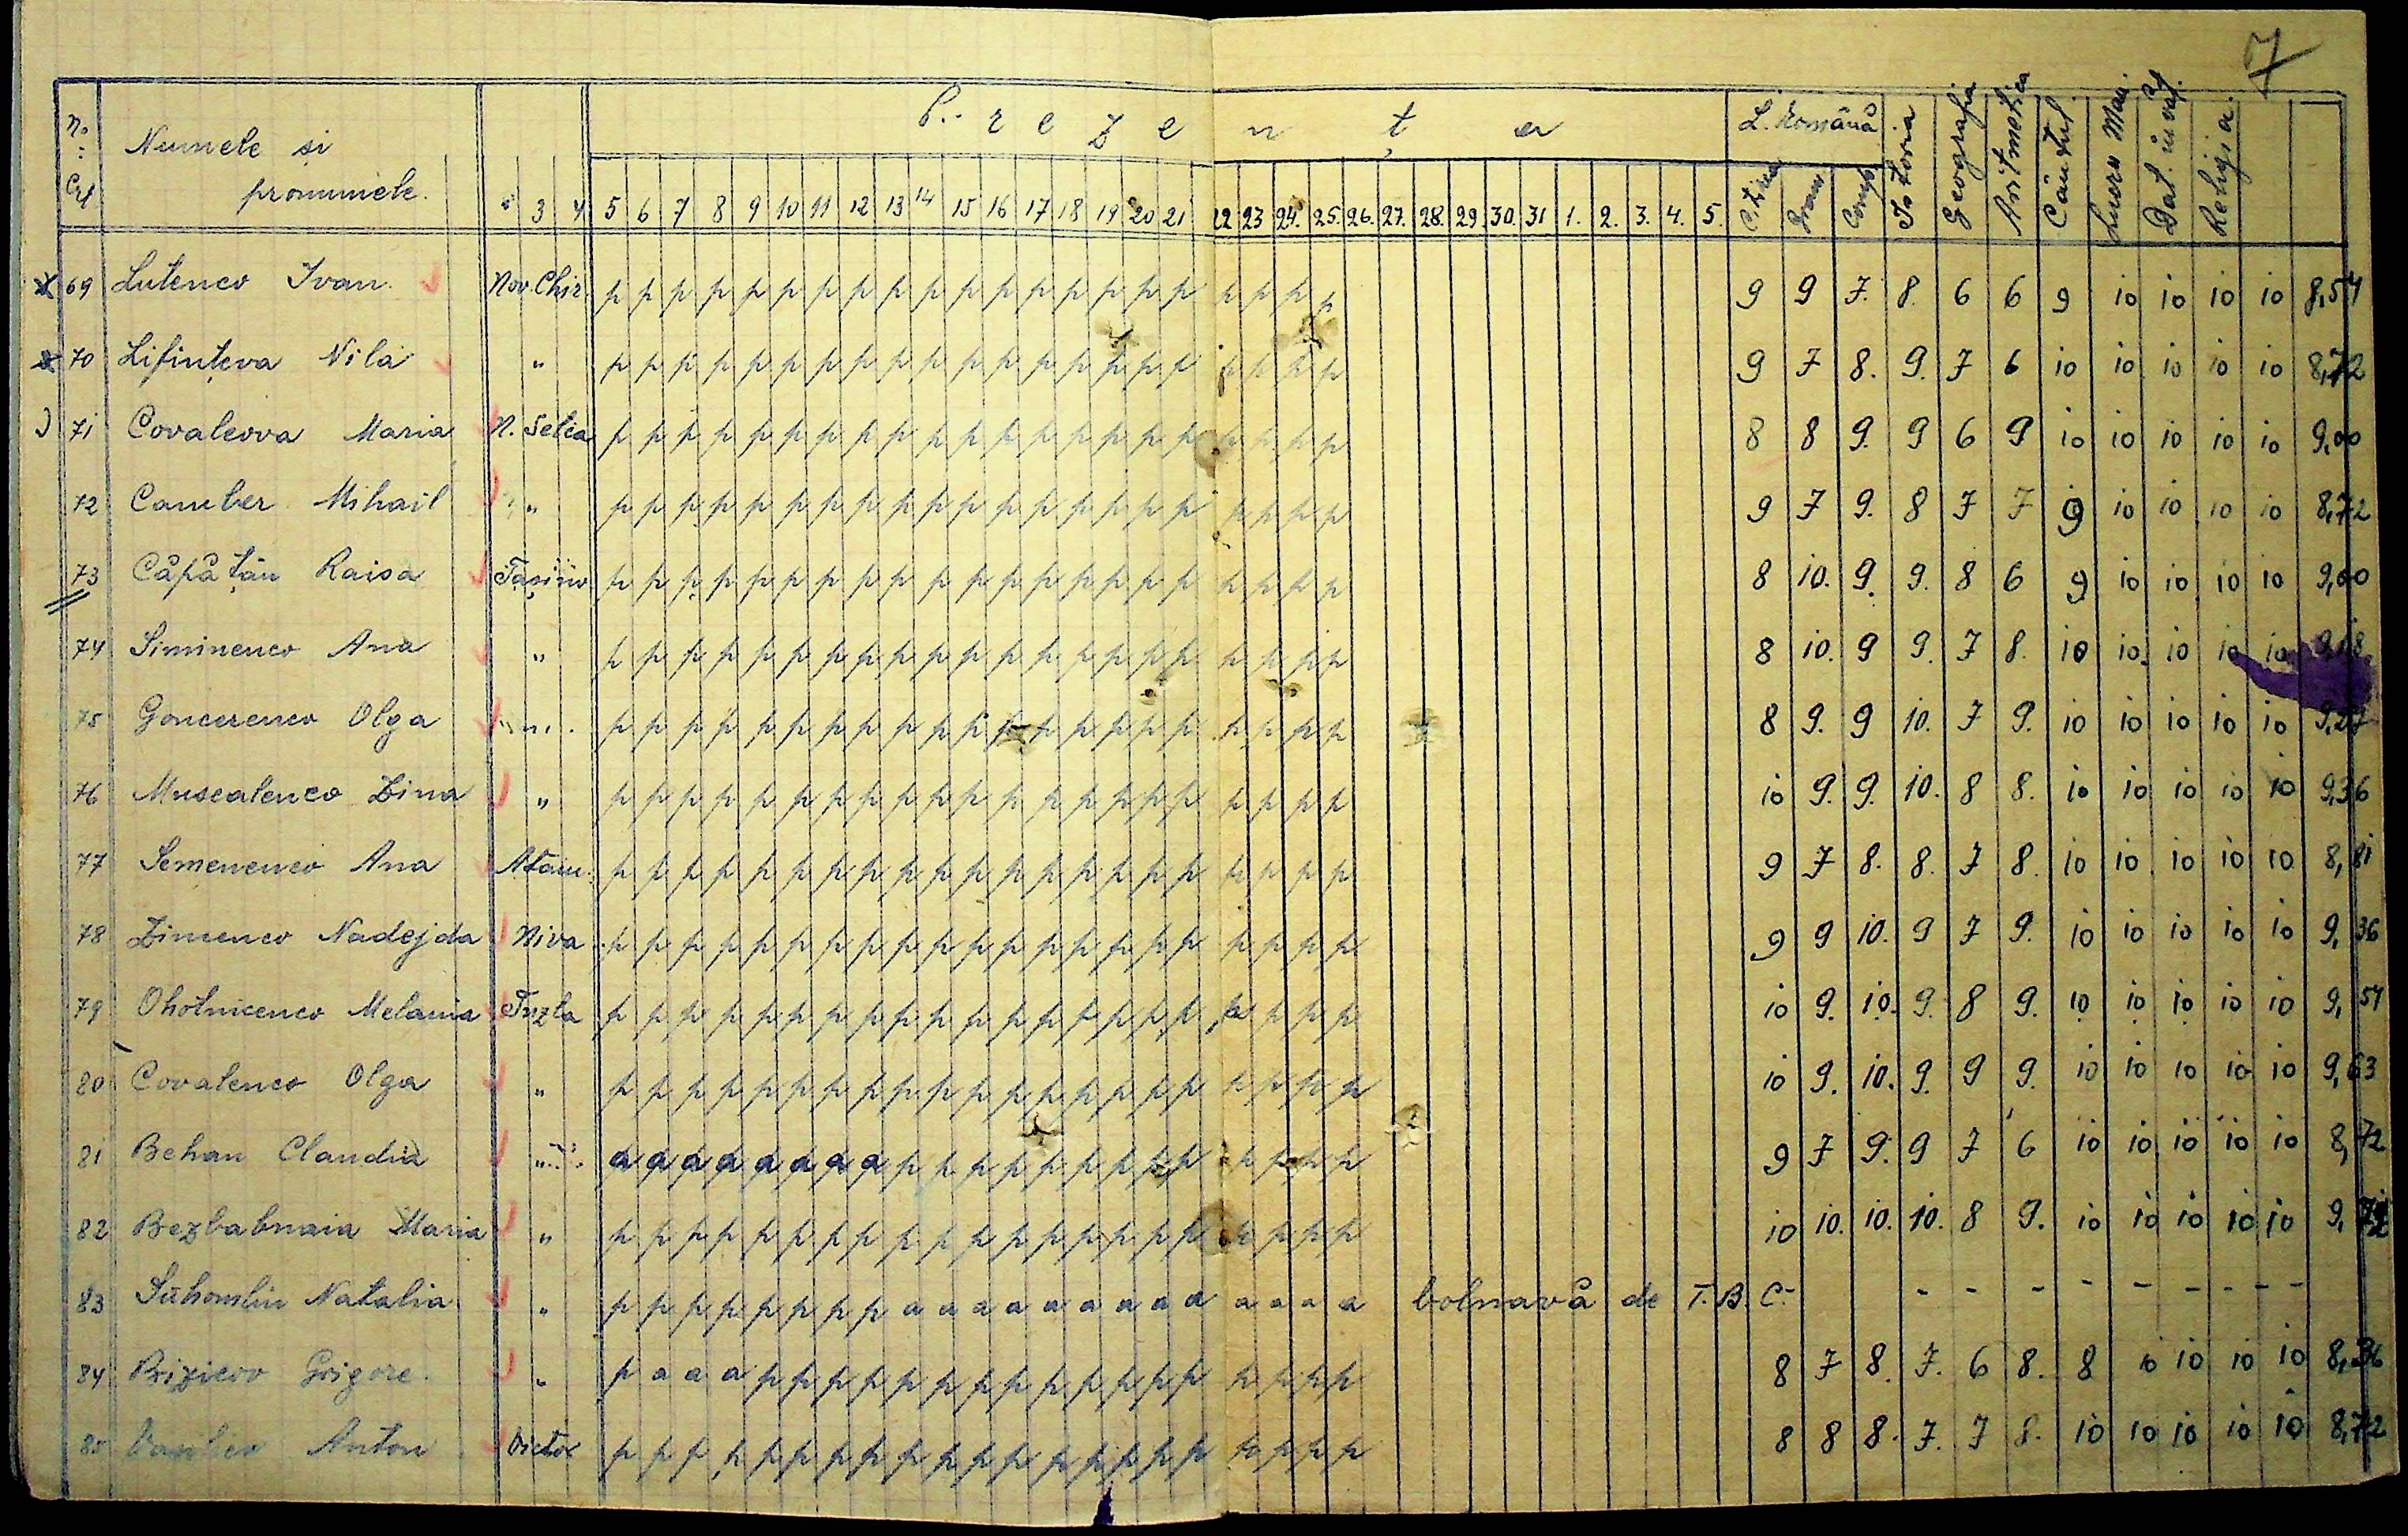 7
P r e z e n ț a
L. Română
No Crt Numele si pronumele. 3 4 5 6 7 8 9 10 11 12 13 14 15 16 17 18 19 20 21 22 23 24. 25. 26. 27. 28. 29. 30. 31 1. 2. 3. 4. 5. Gram Comp Istoria Geografia Aritmetica Cântul Lucru Man. Religia.
69 Lutenco Ivan. Nov. Chir. p p p p p p p p p p p p p p p p p p p p p 9 9 7. 8. 6 6 9 10 10 10 10 8,54
70 Lifințeva Nila " p p p p p p p p p p p p p p p p p p p p p 9 7 8. 9. 7 6 10 10 10 10 10 8,72
71 Covaleova Maria N. Selca p p p p p p p p p p p p p p p p p p p p p 8 8 9. 9 6 9 10 10 10 10 10 9,00
72 Camber Mihail " p p p p p p p p p p p p p p p p p p p p p 9 7 9. 8 7 7 9 10 10 10 10 8,72
73 Căpățân Raisa p p p p p p p p p p p p p p p p p p p p p 8 10. 9. 9. 8 6 9 10 10 10 10 9,00
74 Siminenco Ana " p p p p p p p p p p p p p p p p p p p p p 8 10. 9 9. 7 8. 10 10. 10 10 10 9,18
75 Goncerenco Olga " p p p p p p p p p p p p p p p p p p p p p 8 9. 9 10. 7 9. 10 10 10 10 10 9,27
76 Muscalenco Zina " p p p p p p p p p p p p p p p p p p p p p 10 9. 9. 10. 8 8. 10 10 10 10 10 9,36
77 Semenenco Ana Atam. p p p p p p p p p p p p p p p p p p p p p 9 7 8. 8. 7 8. 10 10 10 10 10 8,81
78 Zimenco Nadejda Niva p p p p p p p p p p p p p p p p p p p p p 9 9 10. 9 7 9. 10 10 10 10 10 9,36
79 Ohotnicenco Melania Tuzla p p p p p p p p p p p p p p p p p p p p p 10 9. 10. 9. 8 9. 10 10 10 10 10 9,54
80 Covalenco Olga " p p p p p p p p p p p p p p p p p p p p p 10 9. 10. 9. 9 9. 10 10 10 10 10 9,63
81 Behan Claudia " a a a a a a a a p p p p p p p p p p p p p 9 7 9. 9 7 6 10 10 10 10 10 8,72
82 Bezbabnaia Maria " p p p p p p p p p p p p p p p p p p p p p 10 10. 10. 10. 8 9. 10 10 10 10 10 9,72
83 Suhomlin Natalia " p p p p p p p p a a a a a a a a a a a a a bolnavă de T.B.C. - - - - - - - - -
84 Brizicov Grigore. " p a a a p p p p p p p p p p p p p p p p p 8 7 8. 7. 6 8. 8 10 10 10 10 8,36
85 Vasilco Anton Victor p p p p p p p p p p p p p p p p p p p p p 8 8 8. 7. 7 8. 10 10 10 10 10 8,72